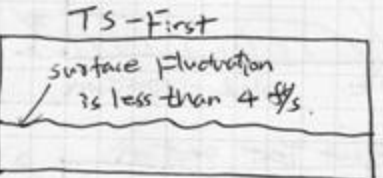 TS-First
surface fluctuation
is less than 4 ft/s.